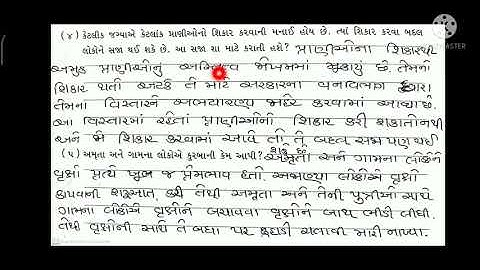 (૪) કેટલીક જગ્યાએ કેટલાંક પ્રાણીઓનો શિકાર કરવાની મનાઈ હોય છે. ત્યાં શિકાર કરવા બદલ
લોકોને સજા થઈ શકે છે. આ સજા શા માટે કરાતી હશે? પ્રાણીઓના શિકારથી
અમુક પ્રાણીઓનું અસ્તિત્વ જોખમમાં મુકાયું છે. તેમનો
શિકાર થતો અટકે તે માટે સરકારના વનવિભાગ દ્વારા
તેમના વિસ્તારને અભયારણ્ય જાહેર કરવામાં આવ્યા છે.
આ વિસ્તારમાં રહેતાં પ્રાણીઓનો શિકાર કરી શકાતો નથી
અને જો શિકાર કરવામાં આવે તો તે બદલ સજા પણ થઈ
શકે છે.
(૫) અમૃતા અને ગામના લોકોએ કુરબાની કેમ આપી? અમૃતા અને ગામના લોકોને
વૃક્ષો પ્રત્યે ખૂબ જ પ્રેમભાવ હતો. અજાણ્યા લોકોએ વૃક્ષો
કાપવાની શરૂઆત કરી તેથી અમૃતા અને તેની પુત્રીઓ સાથે
ગામના લોકોએ વૃક્ષોને બચાવવા વૃક્ષોને બાથ ભીડી લીધી.
તેથી વૃક્ષોની સાથે તે બધા પર કુહાડી ચલાવી મારી નાખ્યા.